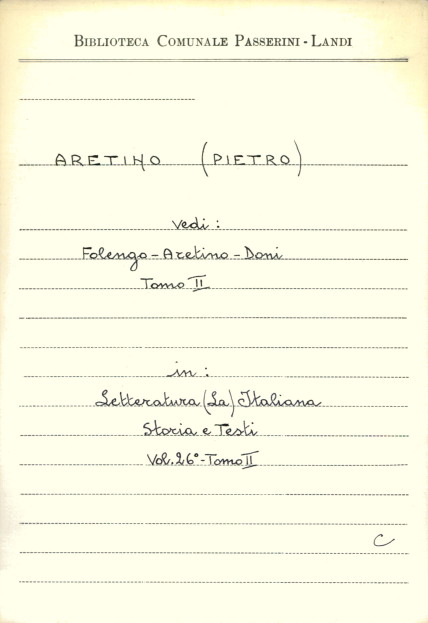 BIBLIOTECA COMUNALE PASSERINI - LANDI
ARETINO (PIETRO)
vedi :
Folengo - Aretino - Doni
Tomo II
in :
Letteratura (La) Italiana
Storia e Testi
Vol. 26° - Tomo II
C